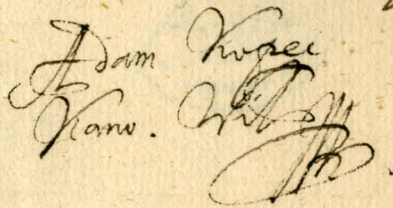 Adam Kopec
Kano. Wil